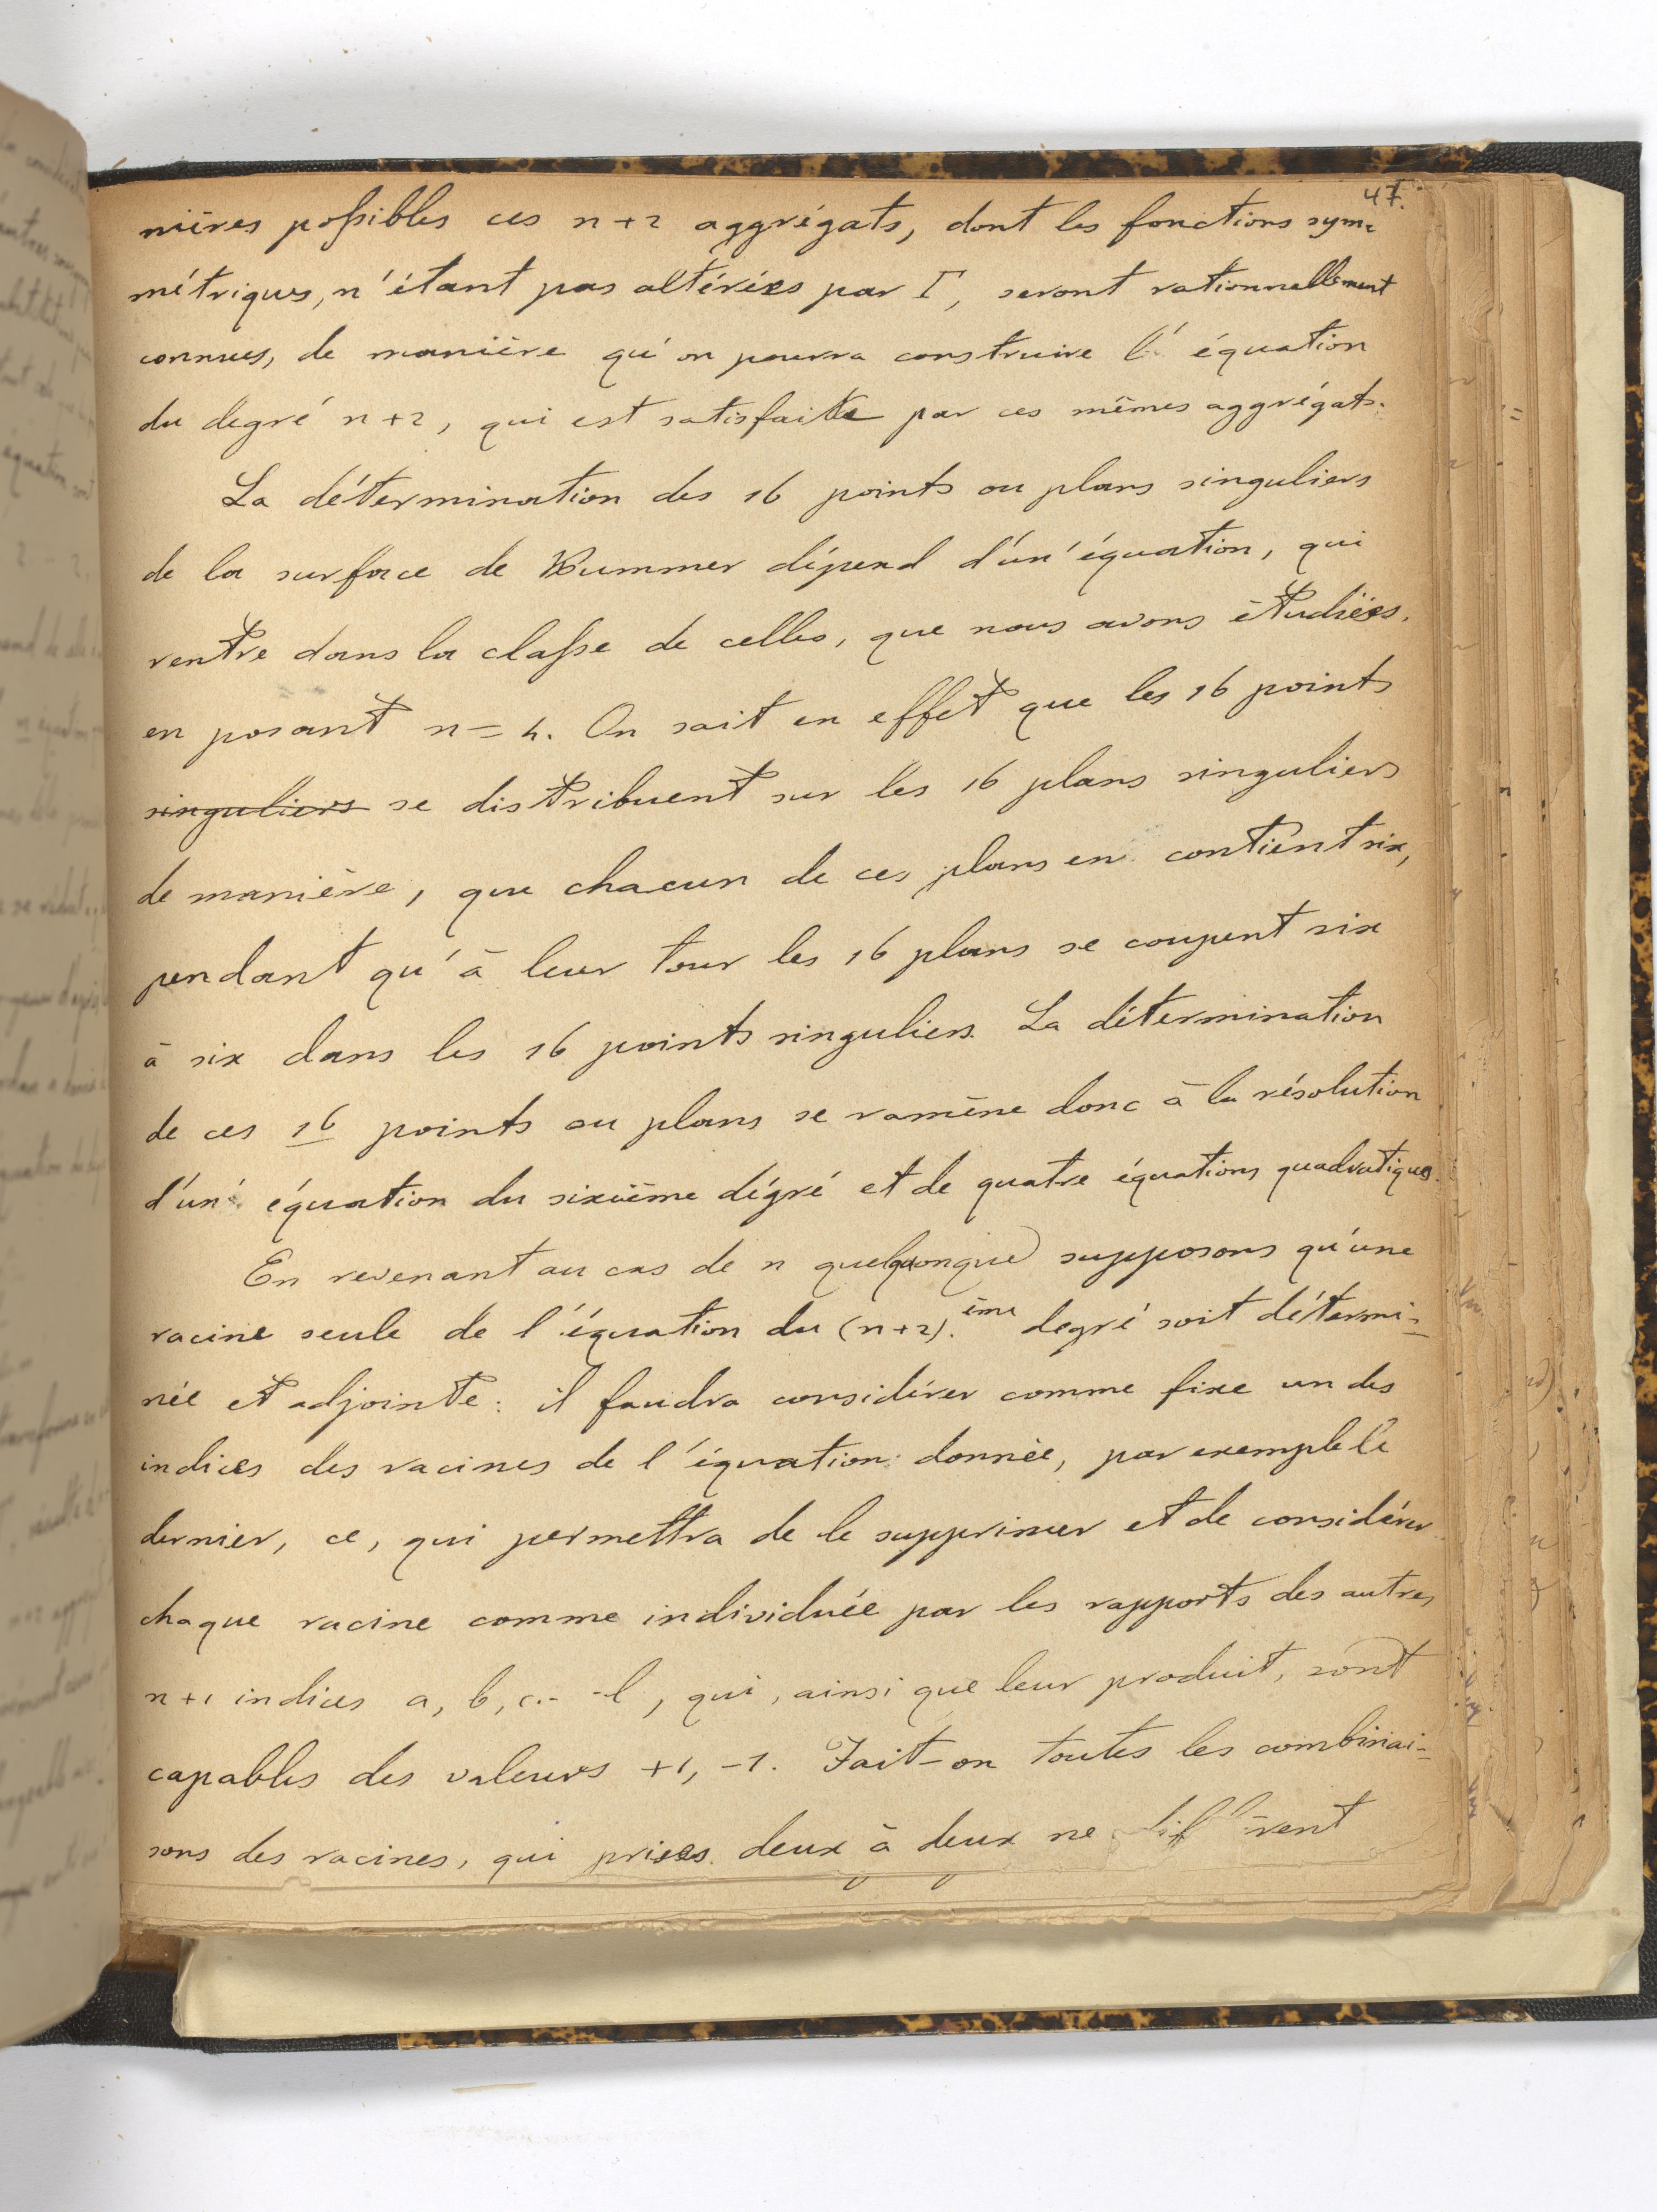 47.
nières possibles ces n+2 aggrégats, dont les fonctions sym=
métriques, n'étant pas altérées par Γ, seront rationnellement
connues, de manière qu'on pourra construire l'équation
du degré n+2, qui est satisfaite par ces mêmes aggrégats.
La détermination des 16 points ou plans singuliers
de la surface de Kummer dépend d'un'équation, qui
rentre dans la classe de celles, que nous avons étudiées,
en posant n=4. On sait en effet que les 16 points
singuliers se distribuent sur les 16 plans singuliers
de manière, que chacun de ces plans en contient six,
pendant qu'à leur tour les 16 plans se coupent six
à six dans les 16 points singuliers. La détermination
de ces 16 points ou plans se ramène donc à la résolution
d'un' équation du sixième dégré et de quatre équations quadratiques.
En revenant au cas de n quelquonque supposons qu'une
racine seule de l'équation du (n+2).ème degré soit détermi=
née et adjointe: il faudra considérer comme fixe un des
indices des racines de l'équation donnée, par exemple le
dernier, ce, qui permettra de le supprimer et de considérer
chaque racine comme individuée par les rapports des autres
n+1 indices a, b, c.- -l, qui, ainsi que leur produit, sont
capables des valeurs +1, -1. Fait-on toutes les combinai=
sons des racines, qui prises deux à deux ne diffèrent